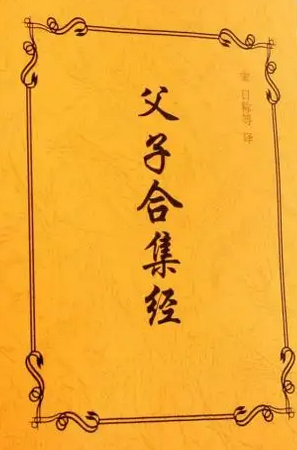 父子合集经
宋 日称等 译